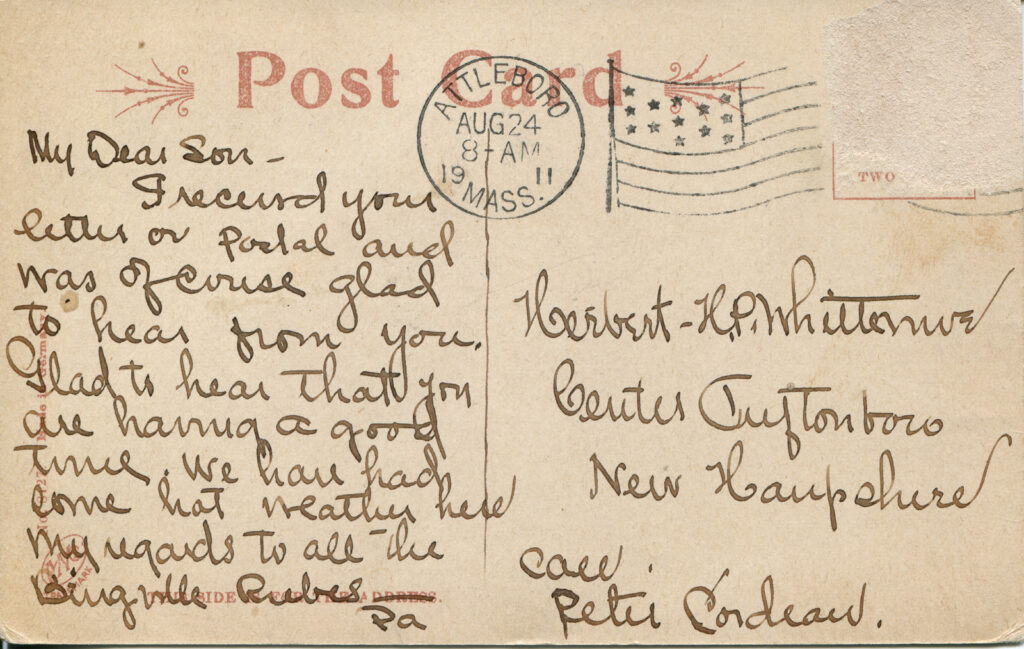 Post Card
ATTLEBORO
AUG 24
8-AM
19 11
MASS.
TWO
My Dear Son-
I receivd your
letter or postal and
was of couse glad
to hear from you.
Glad to hear that you
are having a good
time. We have had
some hot weather here
My regards to all the
Bingville Rubes
Pa
THIS SIDE IS FOR THE ADDRESS.
Herbert-H.P. Whittemore
Center Tuftonboro
New Hampshire
care.
Peter Cordeau.
Made in Germany